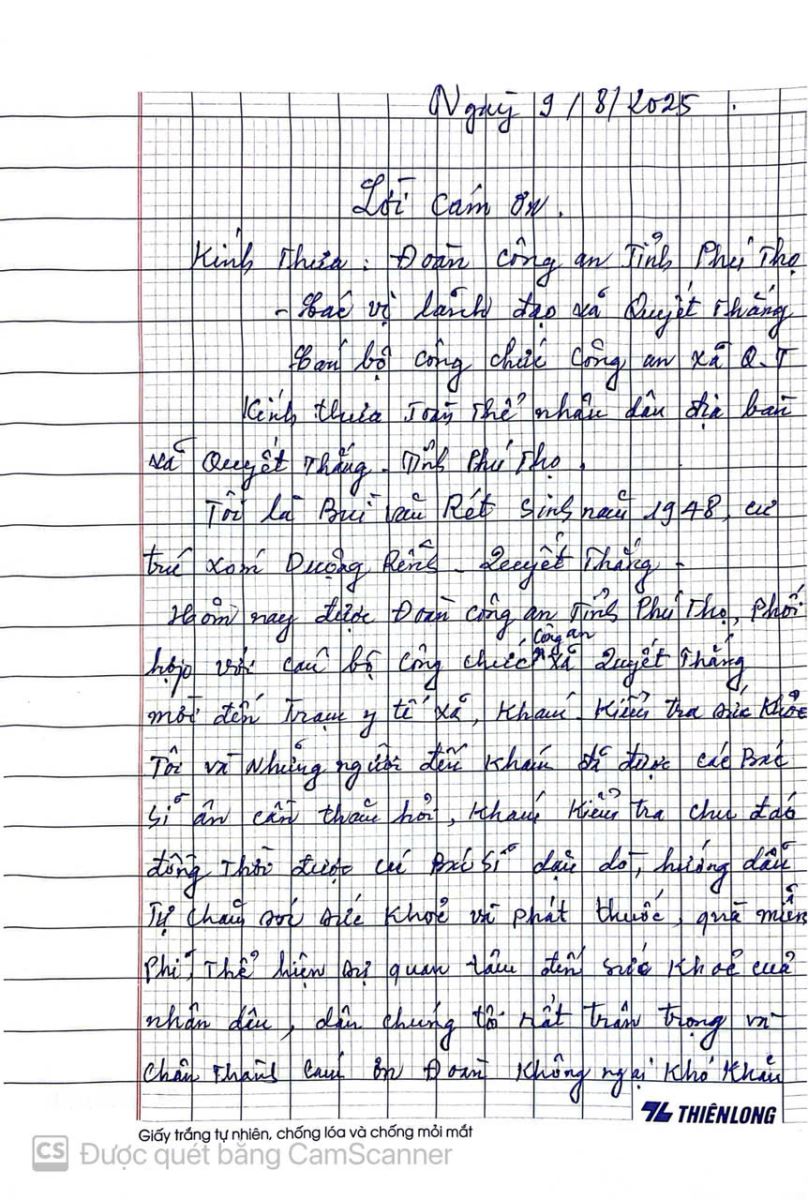 Ngày 9/8/2025.
Lời cám ơn.
Kính Thưa: Đoàn công an Tỉnh Phú Thọ
- Các vị lãnh đạo xã Quyết Thắng
Cán bộ công chức công an xã Q.T
Kính thưa Toàn Thể nhân dân địa bàn
xã Quyết Thắng - Tỉnh Phú Thọ.
Tôi là Bùi Văn Rét Sinh năm 1948, cư
trú xóm Dượng Rềnh - Quyết Thắng -
Hôm nay được Đoàn công an Tỉnh Phú Thọ, Phối
hợp với cán bộ công chức công an xã Quyết Thắng
mời đến Trạm y tế xã, Khám - Kiểm tra sức Khỏe
Tôi và Những người đến Khám đã được các Bác
sĩ ân cần thăm hỏi, Khám Kiểm tra chu đáo
đồng Thời được các Bác Sĩ dặn dò, hướng dẫn
Tự chăm sóc sức Khoẻ và phát thuốc, quà miễn
Phí, Thể hiện sự quan tâm đến sức Khoẻ của
nhân dân, dân chúng tôi rất trân trọng và
chân Thành cám ơn Đoàn Không ngại Khó Khăn
THIÊN LONG
Giấy trắng tự nhiên, chống lóa và chống mỏi mắt
CS Được quét bằng CamScanner